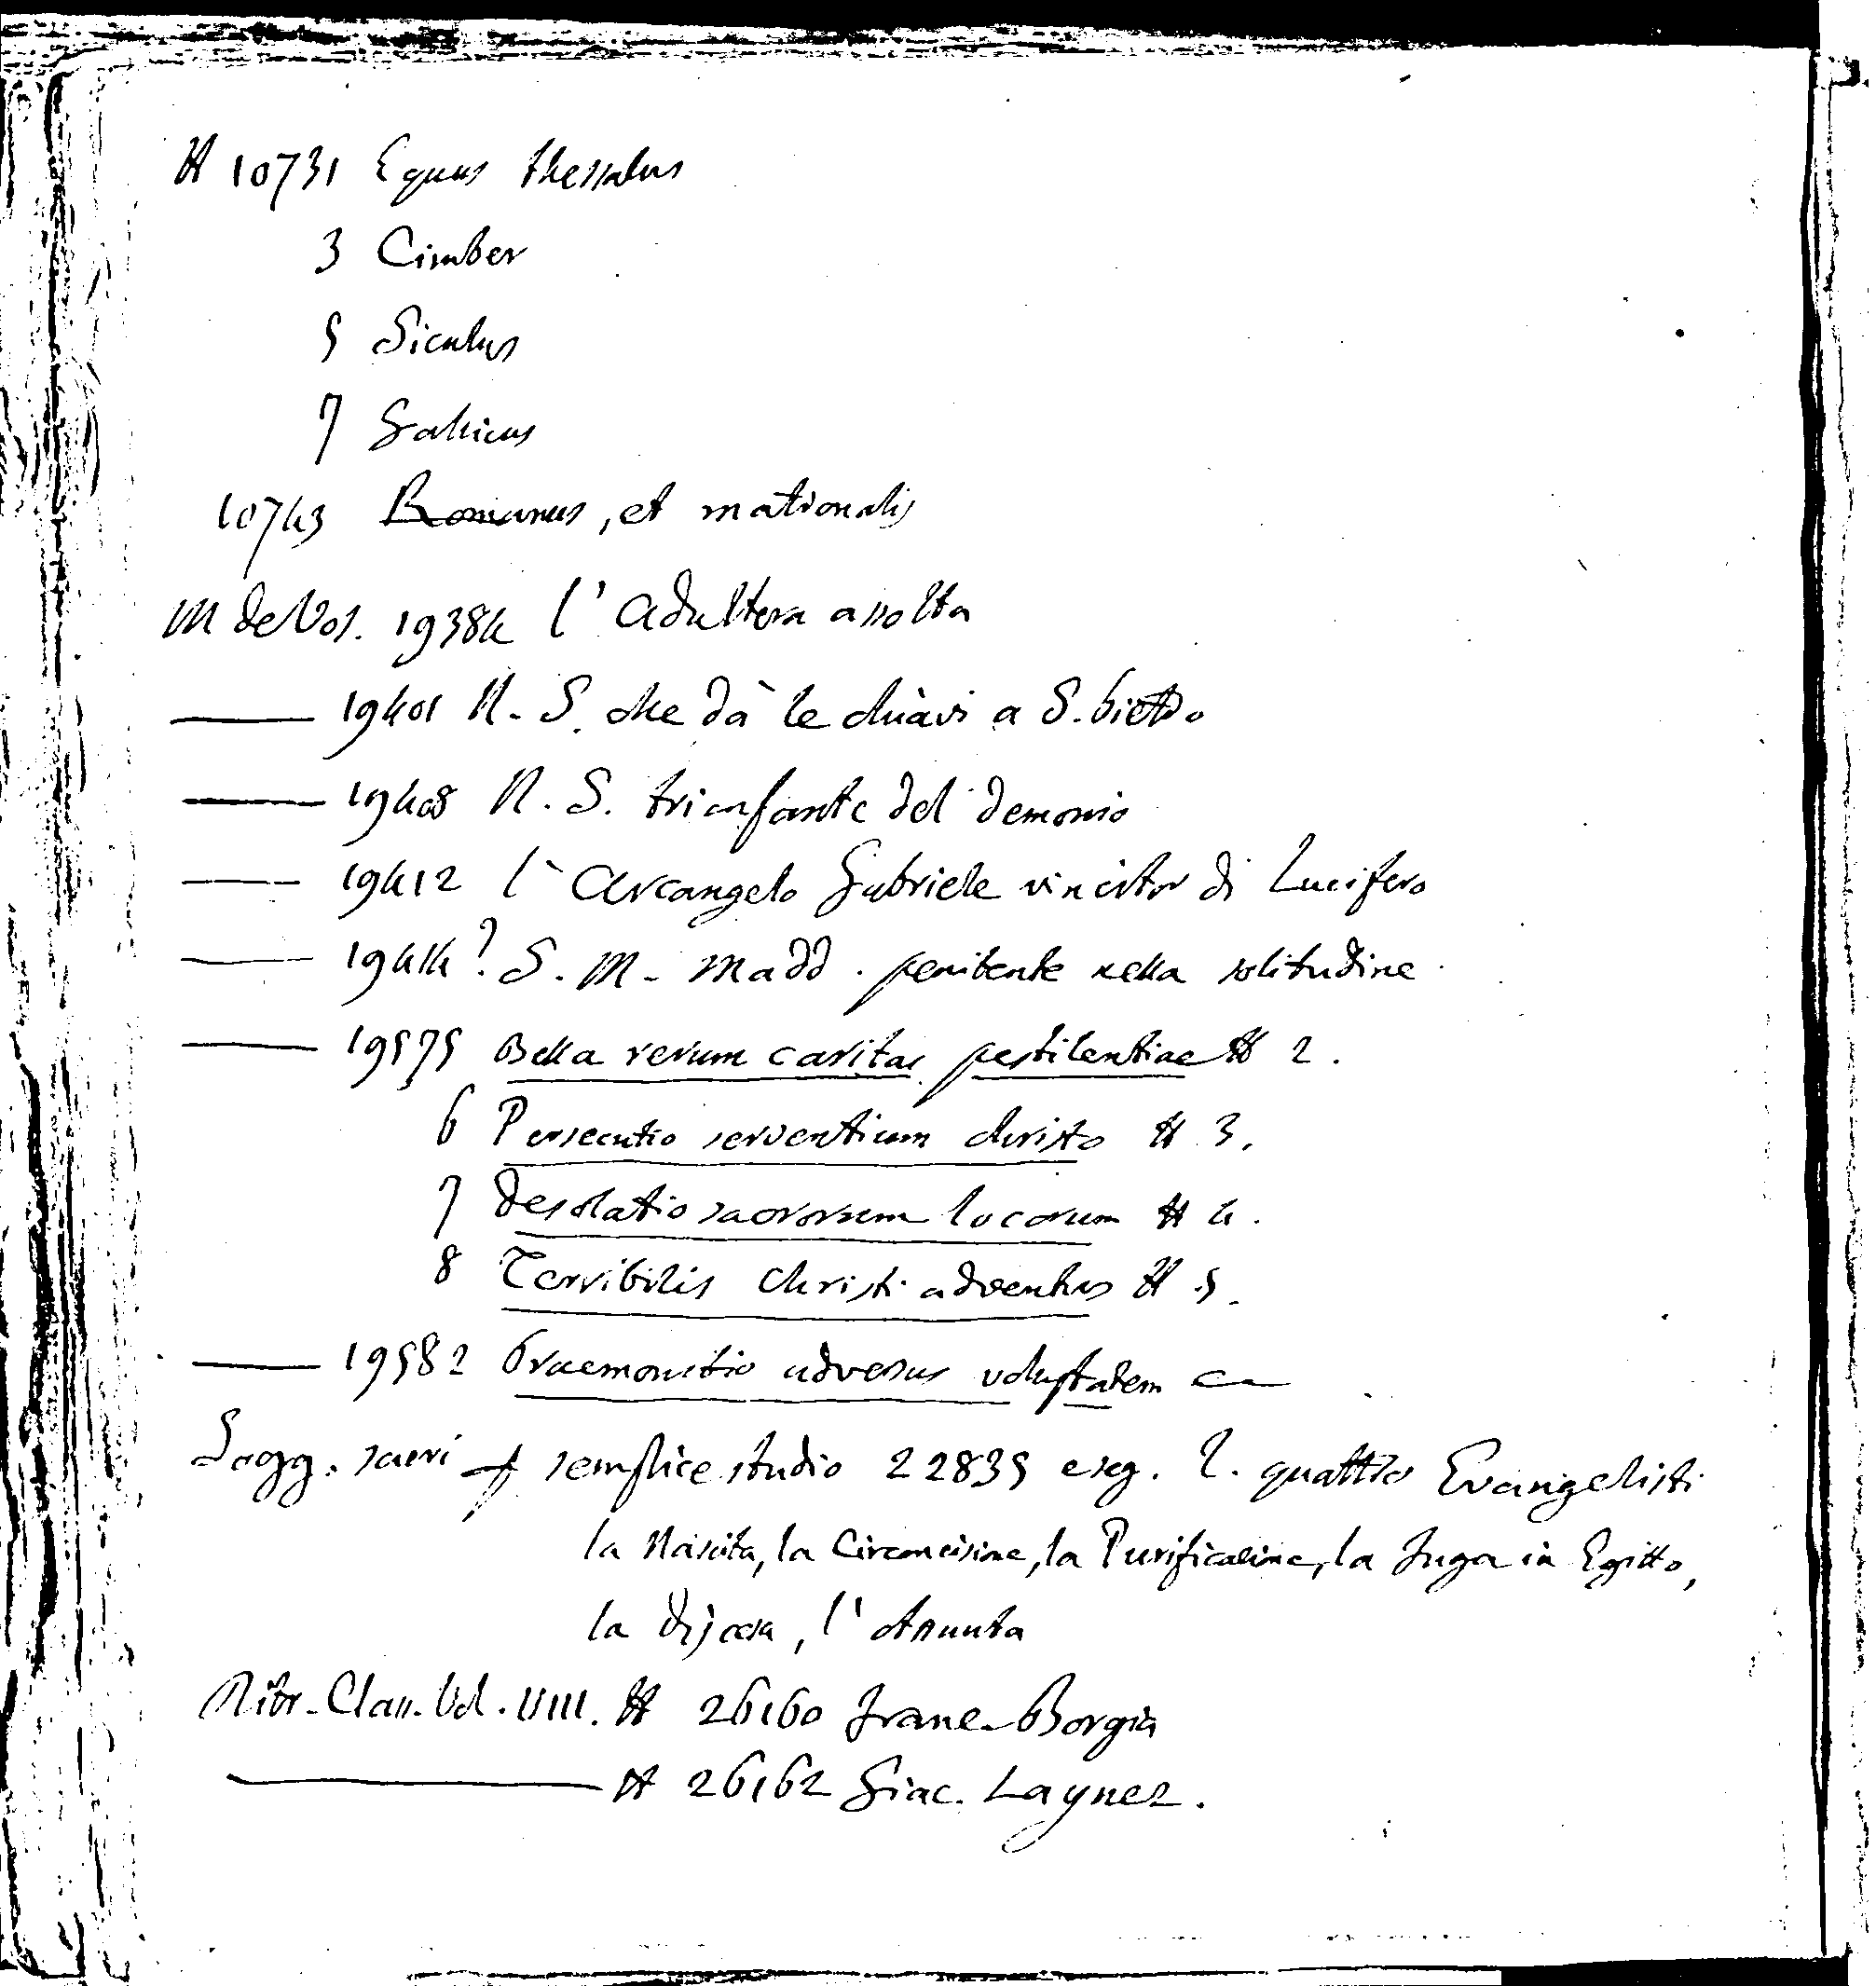 # 10731 Equus thessalus
3 Cimber
5 Siculus
7 Gallicus
10743 Romanus, et matronalis
M de Vos. 19384 l'Adultera assolta
—— 19401 N. S. che dà le chiavi a S. Pietro
—— 19408 N. S. trionfante del demonio
—— 19412 l'Arcangelo Gabriele vincitor di Lucifero
—— 19414? S. M. Madd. penitente nella solitudine
—— 19575 Bella rerum caritas pestilentiae # 2.
6 Persecutio serventium christo # 3.
7 Desolatio sacrorum locorum # 4.
8 Terribilis Christi adventus # 5.
—— 19582 Praemonitio adversus voluptatem
Sogg. sacri + semplice studio 22835 e seg. I. quattro Evangelisti
la Nascita, la Circoncisione, la Purificazione, la Fuga in Egitto,
la Discesa, l'Assunta
Ritr. Class. Vol. VIII. # 26160 Franc. Borgia
—— # 26162 Giac. Laynez.